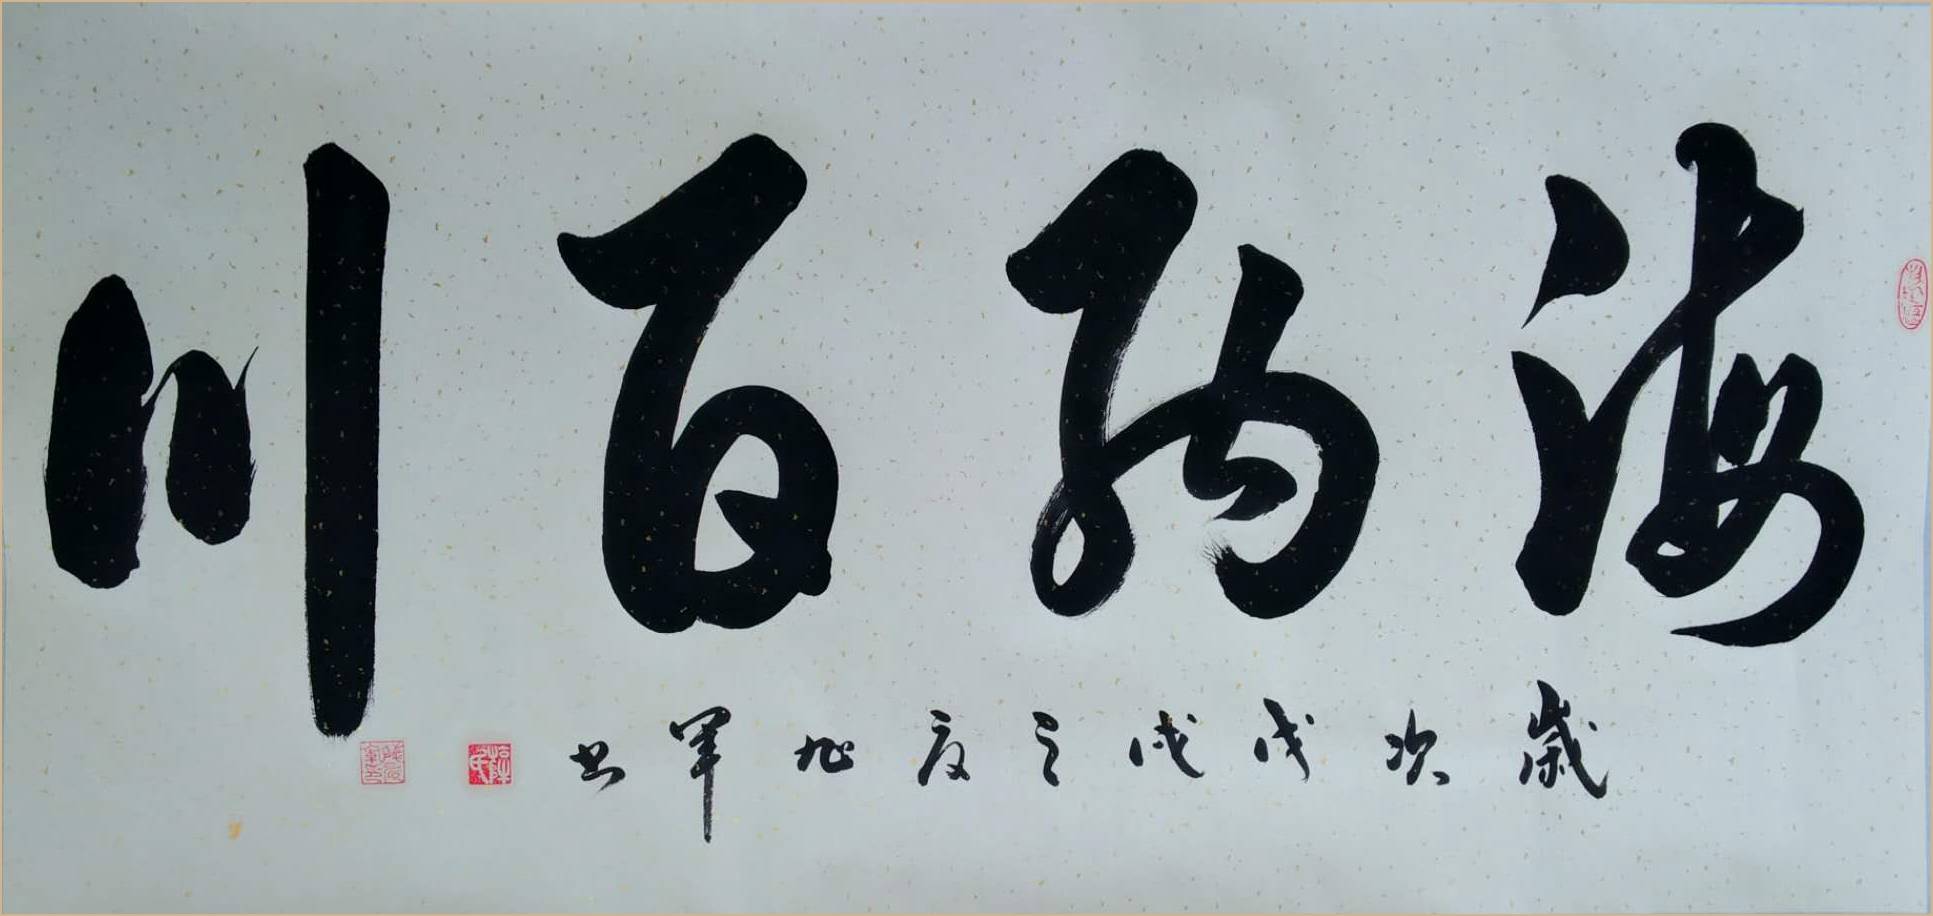 海纳百川
歲次戊戌之夏旭軍书